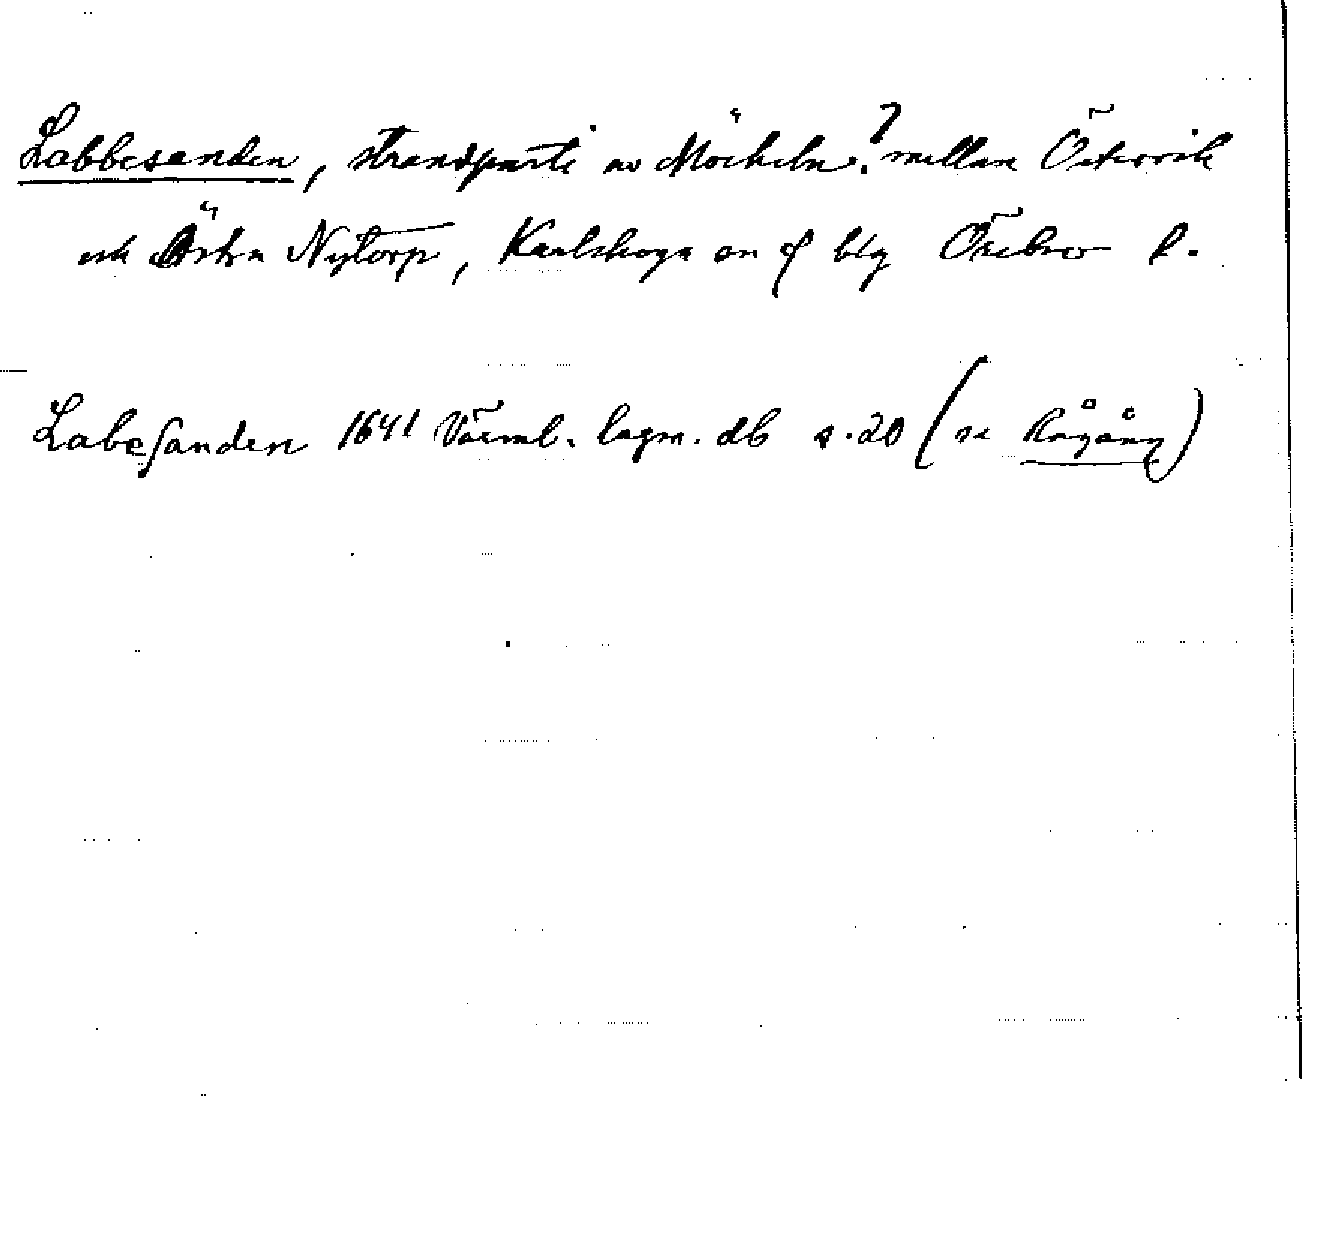 Labbesanden, strandparti av Möckeln? mellan Östervik
och Östra Nytorp, Karlskoga sn o bg Örebro l.
Labesanden 1641 Värml. lagm. db s. 20 (se Rågång)